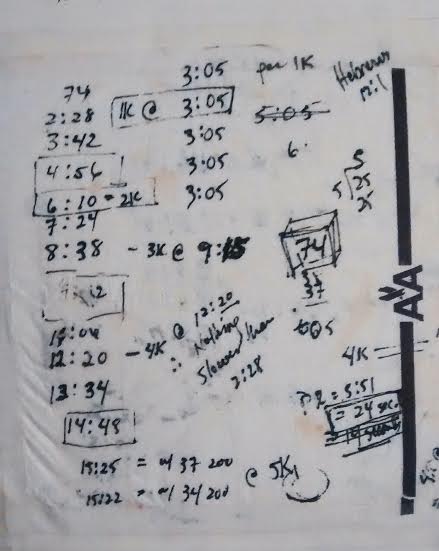 3:05 per 1K
Hebrews
12:1
74
2:28
1K @ 3:05
5:05
3:42
3:05
6
4:56
3:05
5
5 25
25
6:10 = 2K
3:05
7:24
8:38 - 3K @ 9:15
74
37
37
AA
11:06
@ 12:20
12:20 - 4K
∴ Nothing
Slower than
2:28
4K
13:34
= 5:51
= 24 sec.
14:48
15:25 = w/ 37 200
@ 5K
15:22 = w/ 34 200